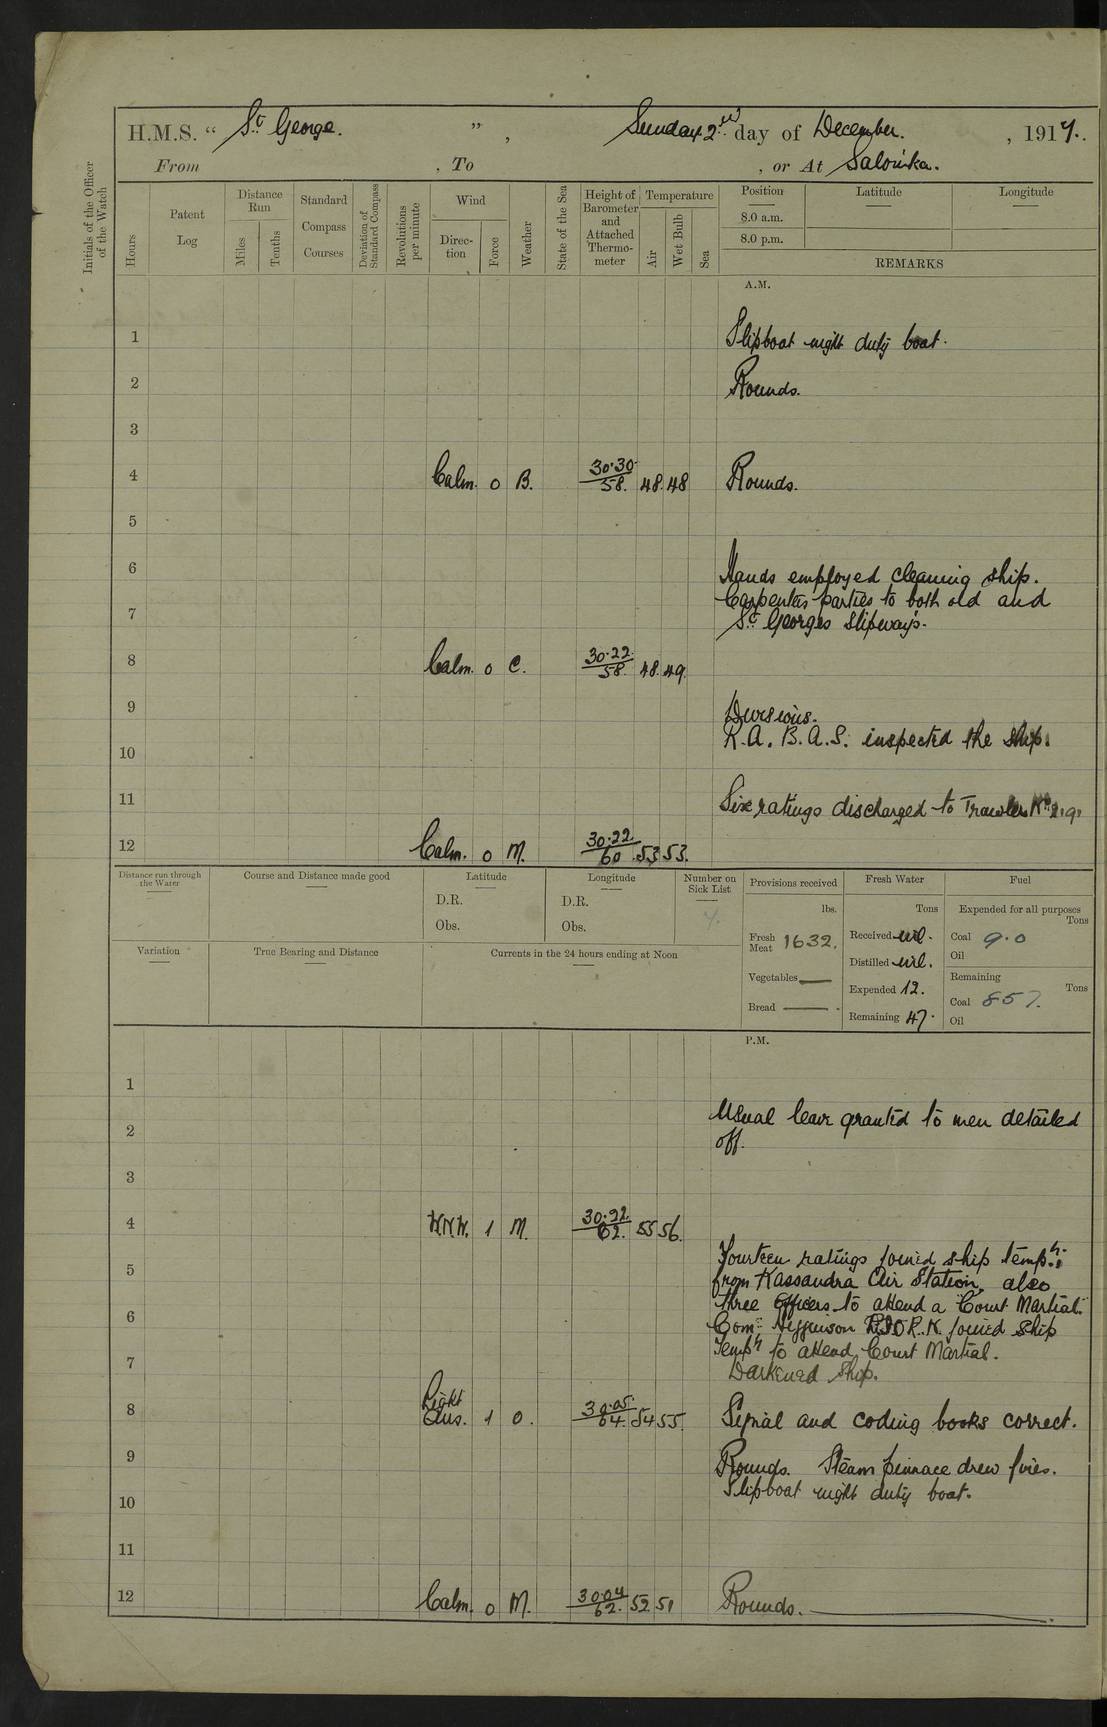 H.M.S. “ St George. ” , Sunday 2nd day of December. , 1917.
From , To , or At Salonika.
Initials of the Officer of the Watch
Hours
Patent Log
Distance Run
Miles
Tenths
Standard Compass Courses
Deviation of Standard Compass
Revolutions per minute
Wind
Direction
Force
Weather
State of the Sea
Height of Barometer and Attached Thermometer
Temperature
Air
Wet Bulb
Sea
Position
8.0 a.m.
8.0 p.m.
Latitude
Longitude
REMARKS
A.M.
1 Slipboat night duty boat.
2 Rounds.
3
4 Calm. 0 B. 30.30 58. 48. 48 Rounds.
5
6 Hands employed cleaning ship.
Carpenters parties to both old and
7 St Georges Slipways.
8 Calm. 0 C. 30.22. 58. 48. 49.
9 Divisions.
R.A. B.A.S. inspected the ship.
10
11 Six ratings discharged to Trawlers
12 Calm. 0 M. 30.22. 60 53 53.
Distance run through the Water
Course and Distance made good
Latitude
D.R.
Obs.
Longitude
D.R.
Obs.
Number on Sick List
4.
Provisions received
lbs.
Fresh Meat 1632.
Vegetables —
Bread — .
Fresh Water
Tons
Received nil.
Distilled nil.
Expended 12.
Remaining 47.
Fuel
Expended for all purposes
Tons
Coal 9.0
Oil
Remaining
Tons
Coal 857.
Oil
Variation
True Bearing and Distance
Currents in the 24 hours ending at Noon
P.M.
1
Usual leave granted to men detailed
2 off.
3
4 W.N.W. 1 M. 62. 55 56.
Fourteen ratings joined ship temph.
5 from Kassandra Air Station, also
three Officers to attend a Court Martial.
6 joined ship
Temph to attend Court Martial.
7 Darkened Ship.
8 Light Aus. 1 0. 30.05. 64. 54 55. Signal and coding books correct.
9 Rounds. Steam pinnace drew fires.
Slipboat night duty boat.
10
11
12 Calm. 0 M. 30.04 62. 52 51 Rounds.